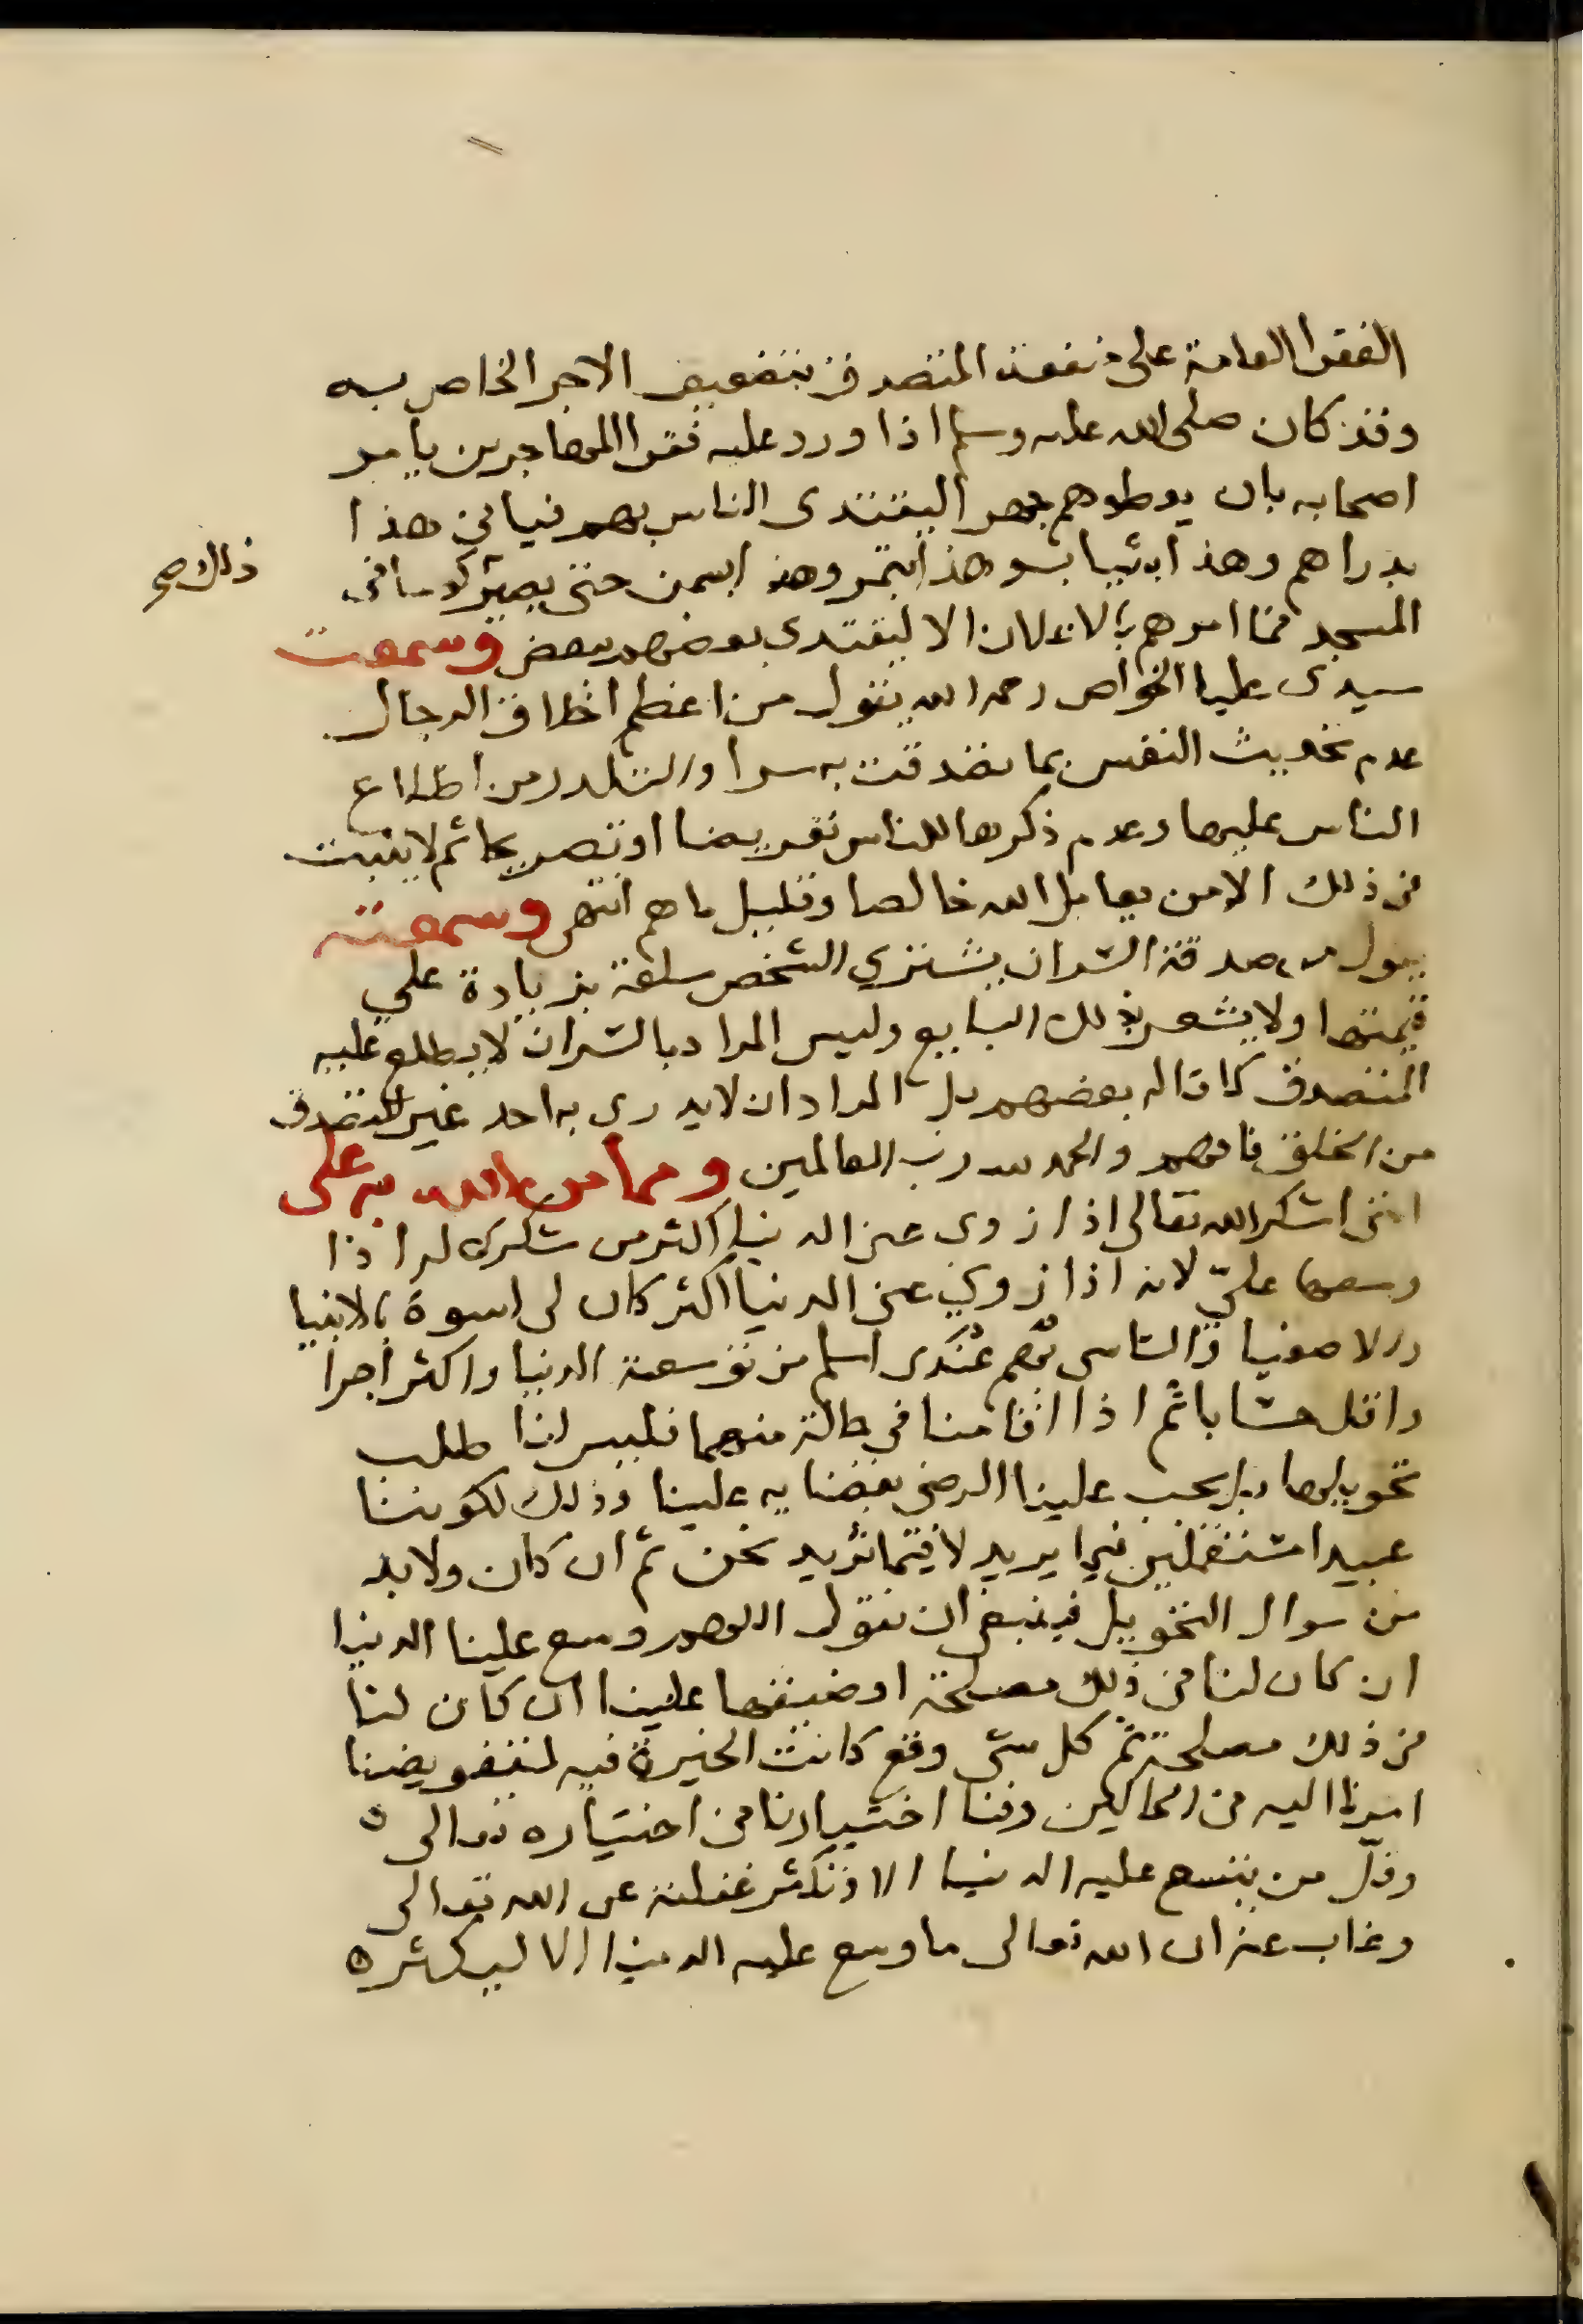 الفقرا العامة على منفعة المتصدق بتضعيف الاجر الخاص به
وقد كان صلى الله عليه وسلم اذا ورد عليه فقرا المهاجرين يامر
اصحابه بان يعطوهم جهرا ليقتدى الناس بهم فياتى هذا
بدراهم وهذا بثياب وهذا بتمر وهذا بسمن حتى يصير كوما فى
ذلك صح
المسجد فما امرهم بالاعلان الا ليقتدى بعضهم ببعض وسمعت
سيدى عليا الخواص رحمه الله يقول من اعظم اخلاق الرجال
عدم تحديث النفس بما تصدقت به سرا والتكدر من اطلاع
الناس عليها وعدم ذكرها للناس تعريضا او تصريحا ثم لا يثبت
فى ذلك الا من يعامل الله خالصا وقليل ما هم انتهى وسمعته
يقول من صدقة السر ان يشترى الشخص سلعة بزيادة على
قيمتها ولا يشعر بذلك البايع وليس المراد بالسر ان لا يطلع عليه
المتصدق كما قاله بعضهم بل المراد ان لا يدرى به احد غير المتصدق
من الخلق فافهم والحمد لله رب العالمين ومما من الله به على
اننى اشكر الله تعالى اذا زوى عنى الدنيا اكثر من شكرى له اذا
وسعها علىّ لانه اذا زوى عنى الدنيا اكثر كان لى اسوة بالانبيا
والاصفيا والتاسى بهم عندى اسلم من توسعة الدنيا واكثر اجرا
واقل حسابا ثم اذا اقامنا فى حالة منهما فليس لنا طلب
تحويلها بل يجب علينا الرضى بقضايه علينا وذلك لكوننا
عبيدا مشتغلين فيما يريد لا فيما نريد نحن ثم ان كان ولا بد
من سوال التحويل فينبغى ان نقول اللهم وسع علينا الدنيا
ان كان لنا فى ذلك مصلحة او ضيقها علينا ان كان لنا
فى ذلك مصلحة ثم كل شى وقع كانت الخيرة فيه لتفويضنا
امرنا اليه فى الحالين وفنا اختيارنا فى اختياره تعالى ه
وقلّ من يتسع عليه الدنيا الا وتكثر غفلته عن الله تعالى
وغاب عنه ان الله تعالى ما وسع عليه الدنيا الا ليكثر ه